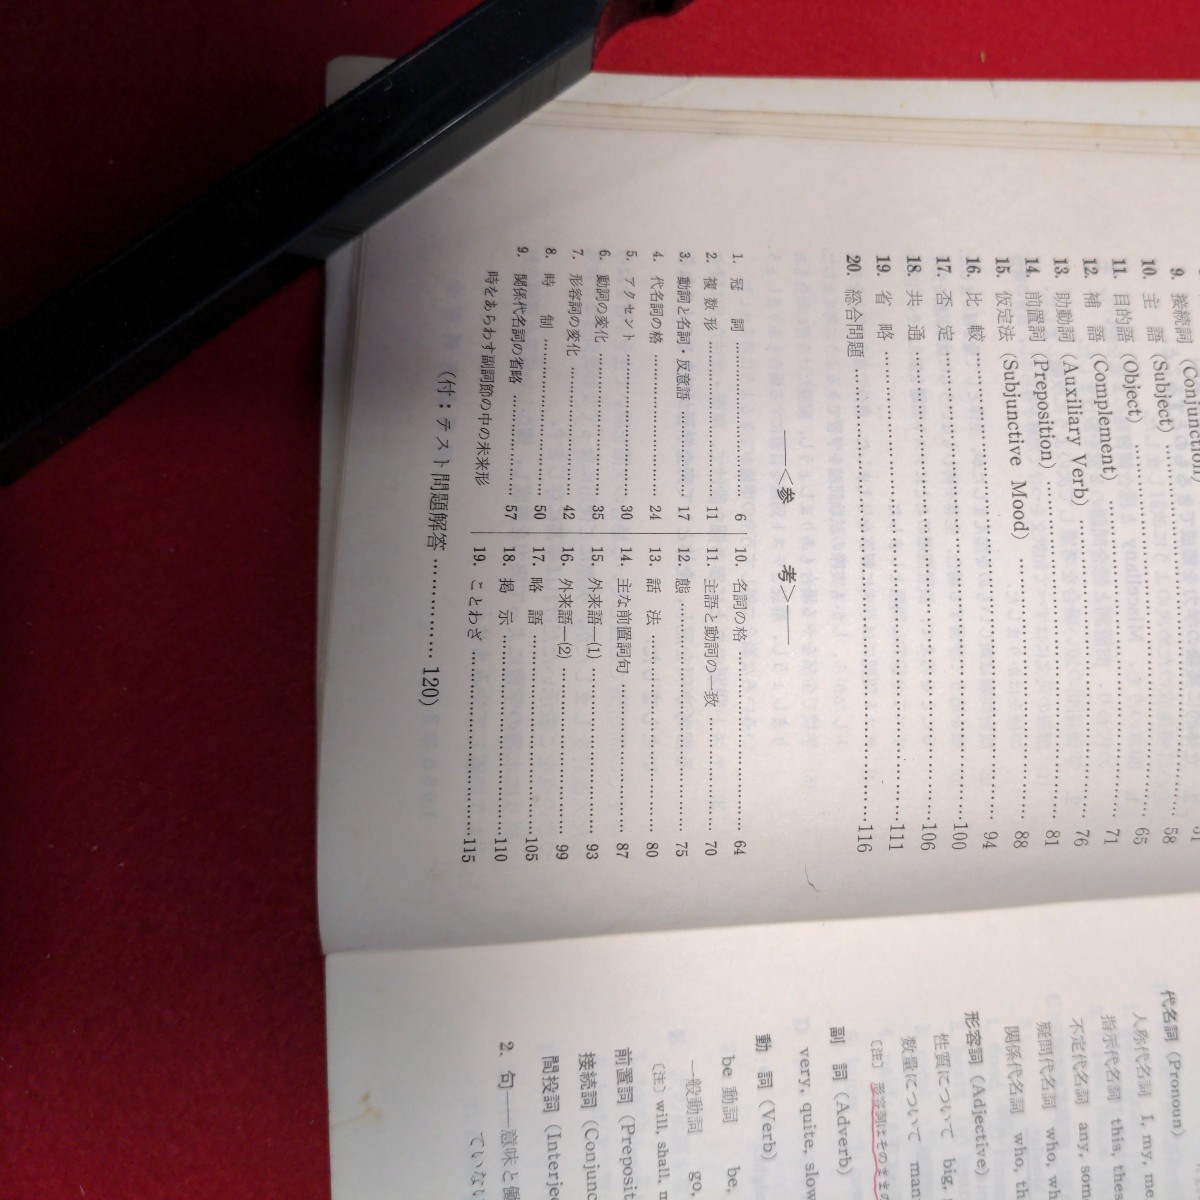 9. 接続詞 (Conjunction)
10. 主 語 (Subject) 58
11. 目的語 (Object) 65
12. 補 語 (Complement) 71
13. 助動詞 (Auxiliary Verb) 76
14. 前置詞 (Preposition) 81
15. 仮定法 (Subjunctive Mood) 88
16. 比 較 94
17. 否 定 100
18. 共 通 106
19. 省 略 111
20. 総合問題 116
――<参 考>――
1. 冠 詞 6
2. 複 数 形 11
3. 動詞と名詞・反意語 17
4. 代名詞の格 24
5. アクセント 30
6. 動詞の変化 35
7. 形容詞の変化 42
8. 時 制 50
9. 関係代名詞の省略 57
時をあらわす副詞節の中の未来形
10. 名詞の格 64
11. 主語と動詞の一致 70
12. 態 75
13. 話 法 80
14. 主な前置詞句 87
15. 外来語―(1) 93
16. 外来語―(2) 99
17. 略 語 105
18. 掲 示 110
19. ことわざ 115
(付：テスト問題解答 120)
代名詞 (Pronoun)
人称代名詞 I, my,
指示代名詞 this,
不定代名詞 any,
疑問代名詞 who,
関係代名詞 who,
形容詞 (Adjective)
性質について big,
数量について
〔注〕 形容詞はそのままの
副 詞 (Adverb)
very, quite,
動 詞 (Verb)
be 動詞 be,
一般動詞 go,
〔注〕 will, shall,
前置詞
接続詞
間投詞
2. 句――意味と
ていな